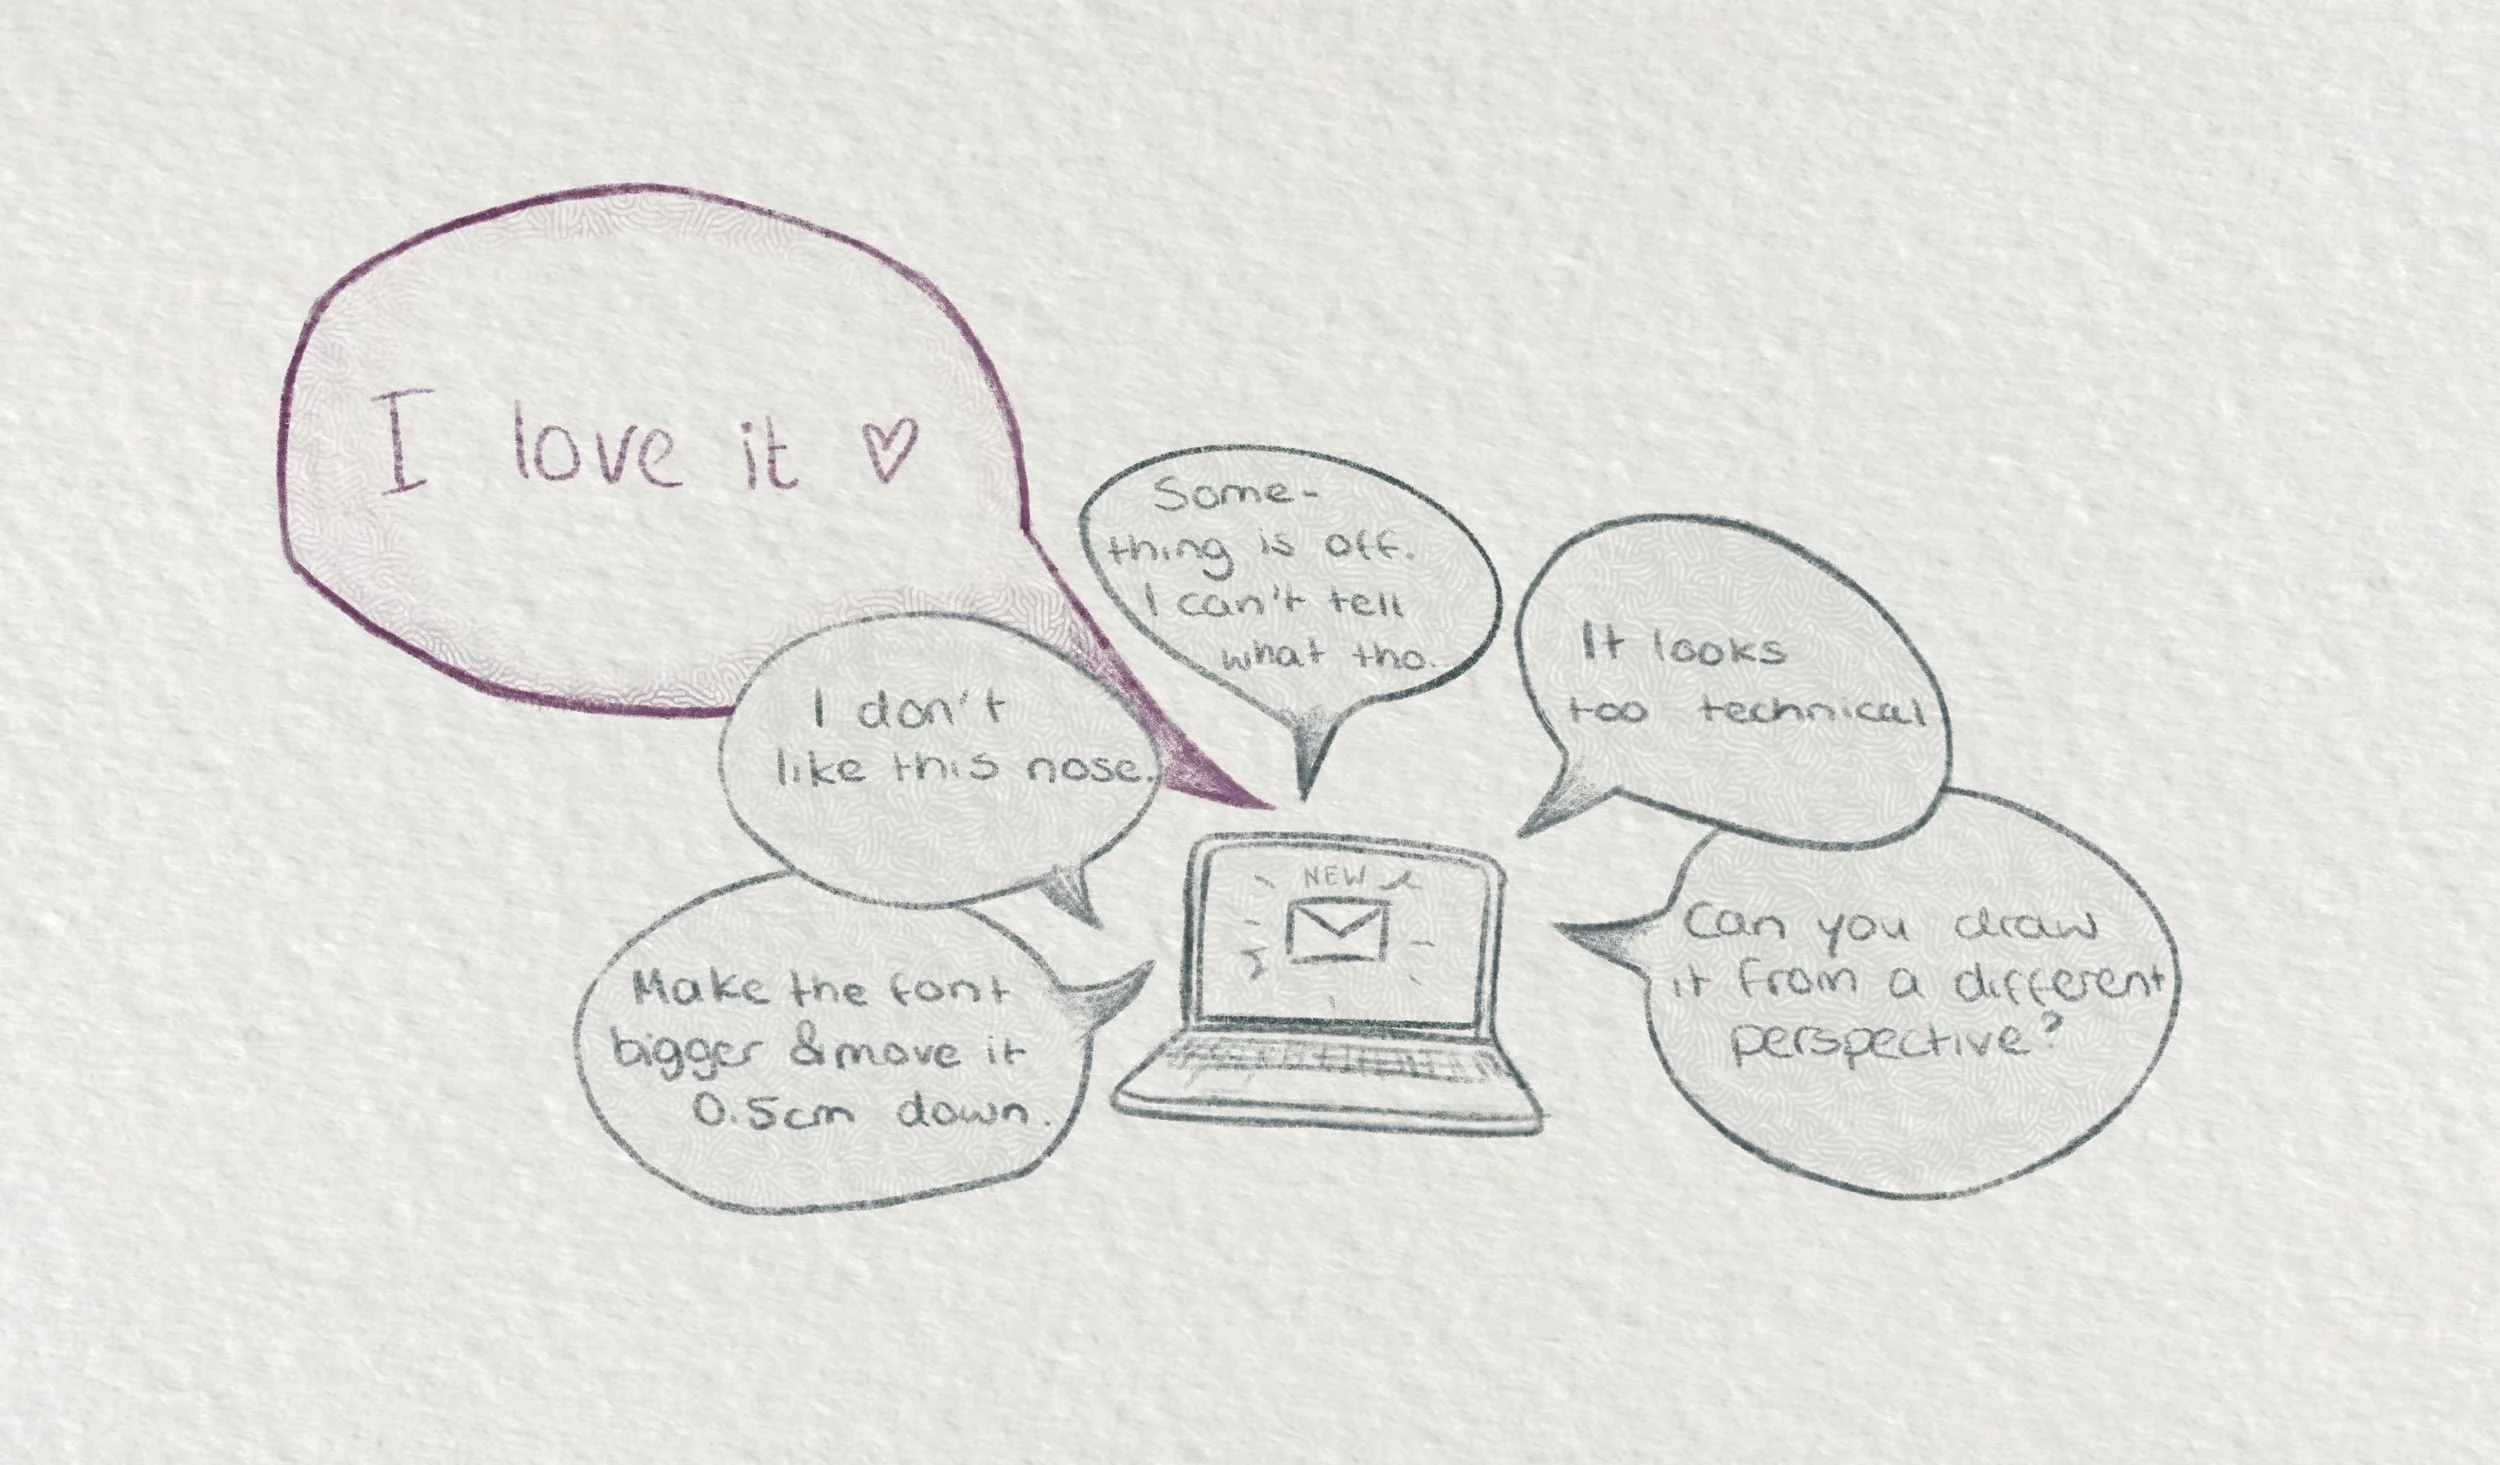 I love it ♡
Some-
thing is off.
I can't tell
what tho.
It looks
too technical
I don't
like this nose.
Make the font
bigger & move it
0.5cm down.
NEW
Can you draw
it from a different
perspective?